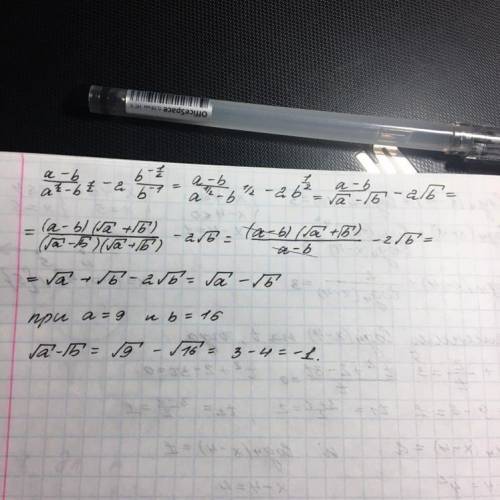 OfficeSpace
(a-b)/(a^(1/2)-b^(1/2)) - 2 b^(-1/2)/b^(-1) = (a-b)/(a^(1/2)-b^(1/2)) - 2b^(1/2) = (a-b)/(√a-√b) - 2√b =
= (a-b)(√a+√b)/((√a-√b)(√a+√b)) - 2√b = (a-b)(√a+√b)/(a-b) - 2√b =
= √a + √b - 2√b = √a - √b
при a=9 и b=16
√a-√b = √9 - √16 = 3-4=-1.